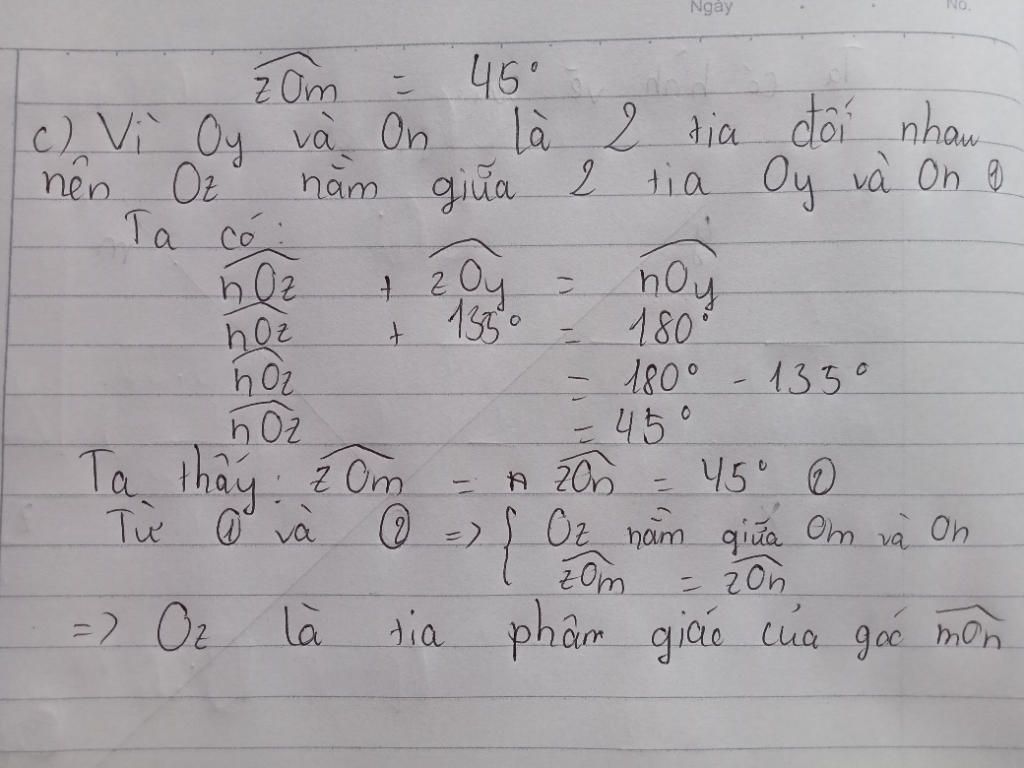 Ngày No.
zOm = 45°
c) Vì Oy và On là 2 tia đối nhau
nên Oz nằm giữa 2 tia Oy và On ①
Ta có:
nOz + zOy = nOy
nOz + 135° = 180°
nOz = 180° - 135°
nOz = 45°
Ta thấy: zOm = zOn = 45° ②
Từ ① và ② => { Oz nằm giữa Om và On
zOm = zOn
=> Oz là tia phân giác của góc mOn